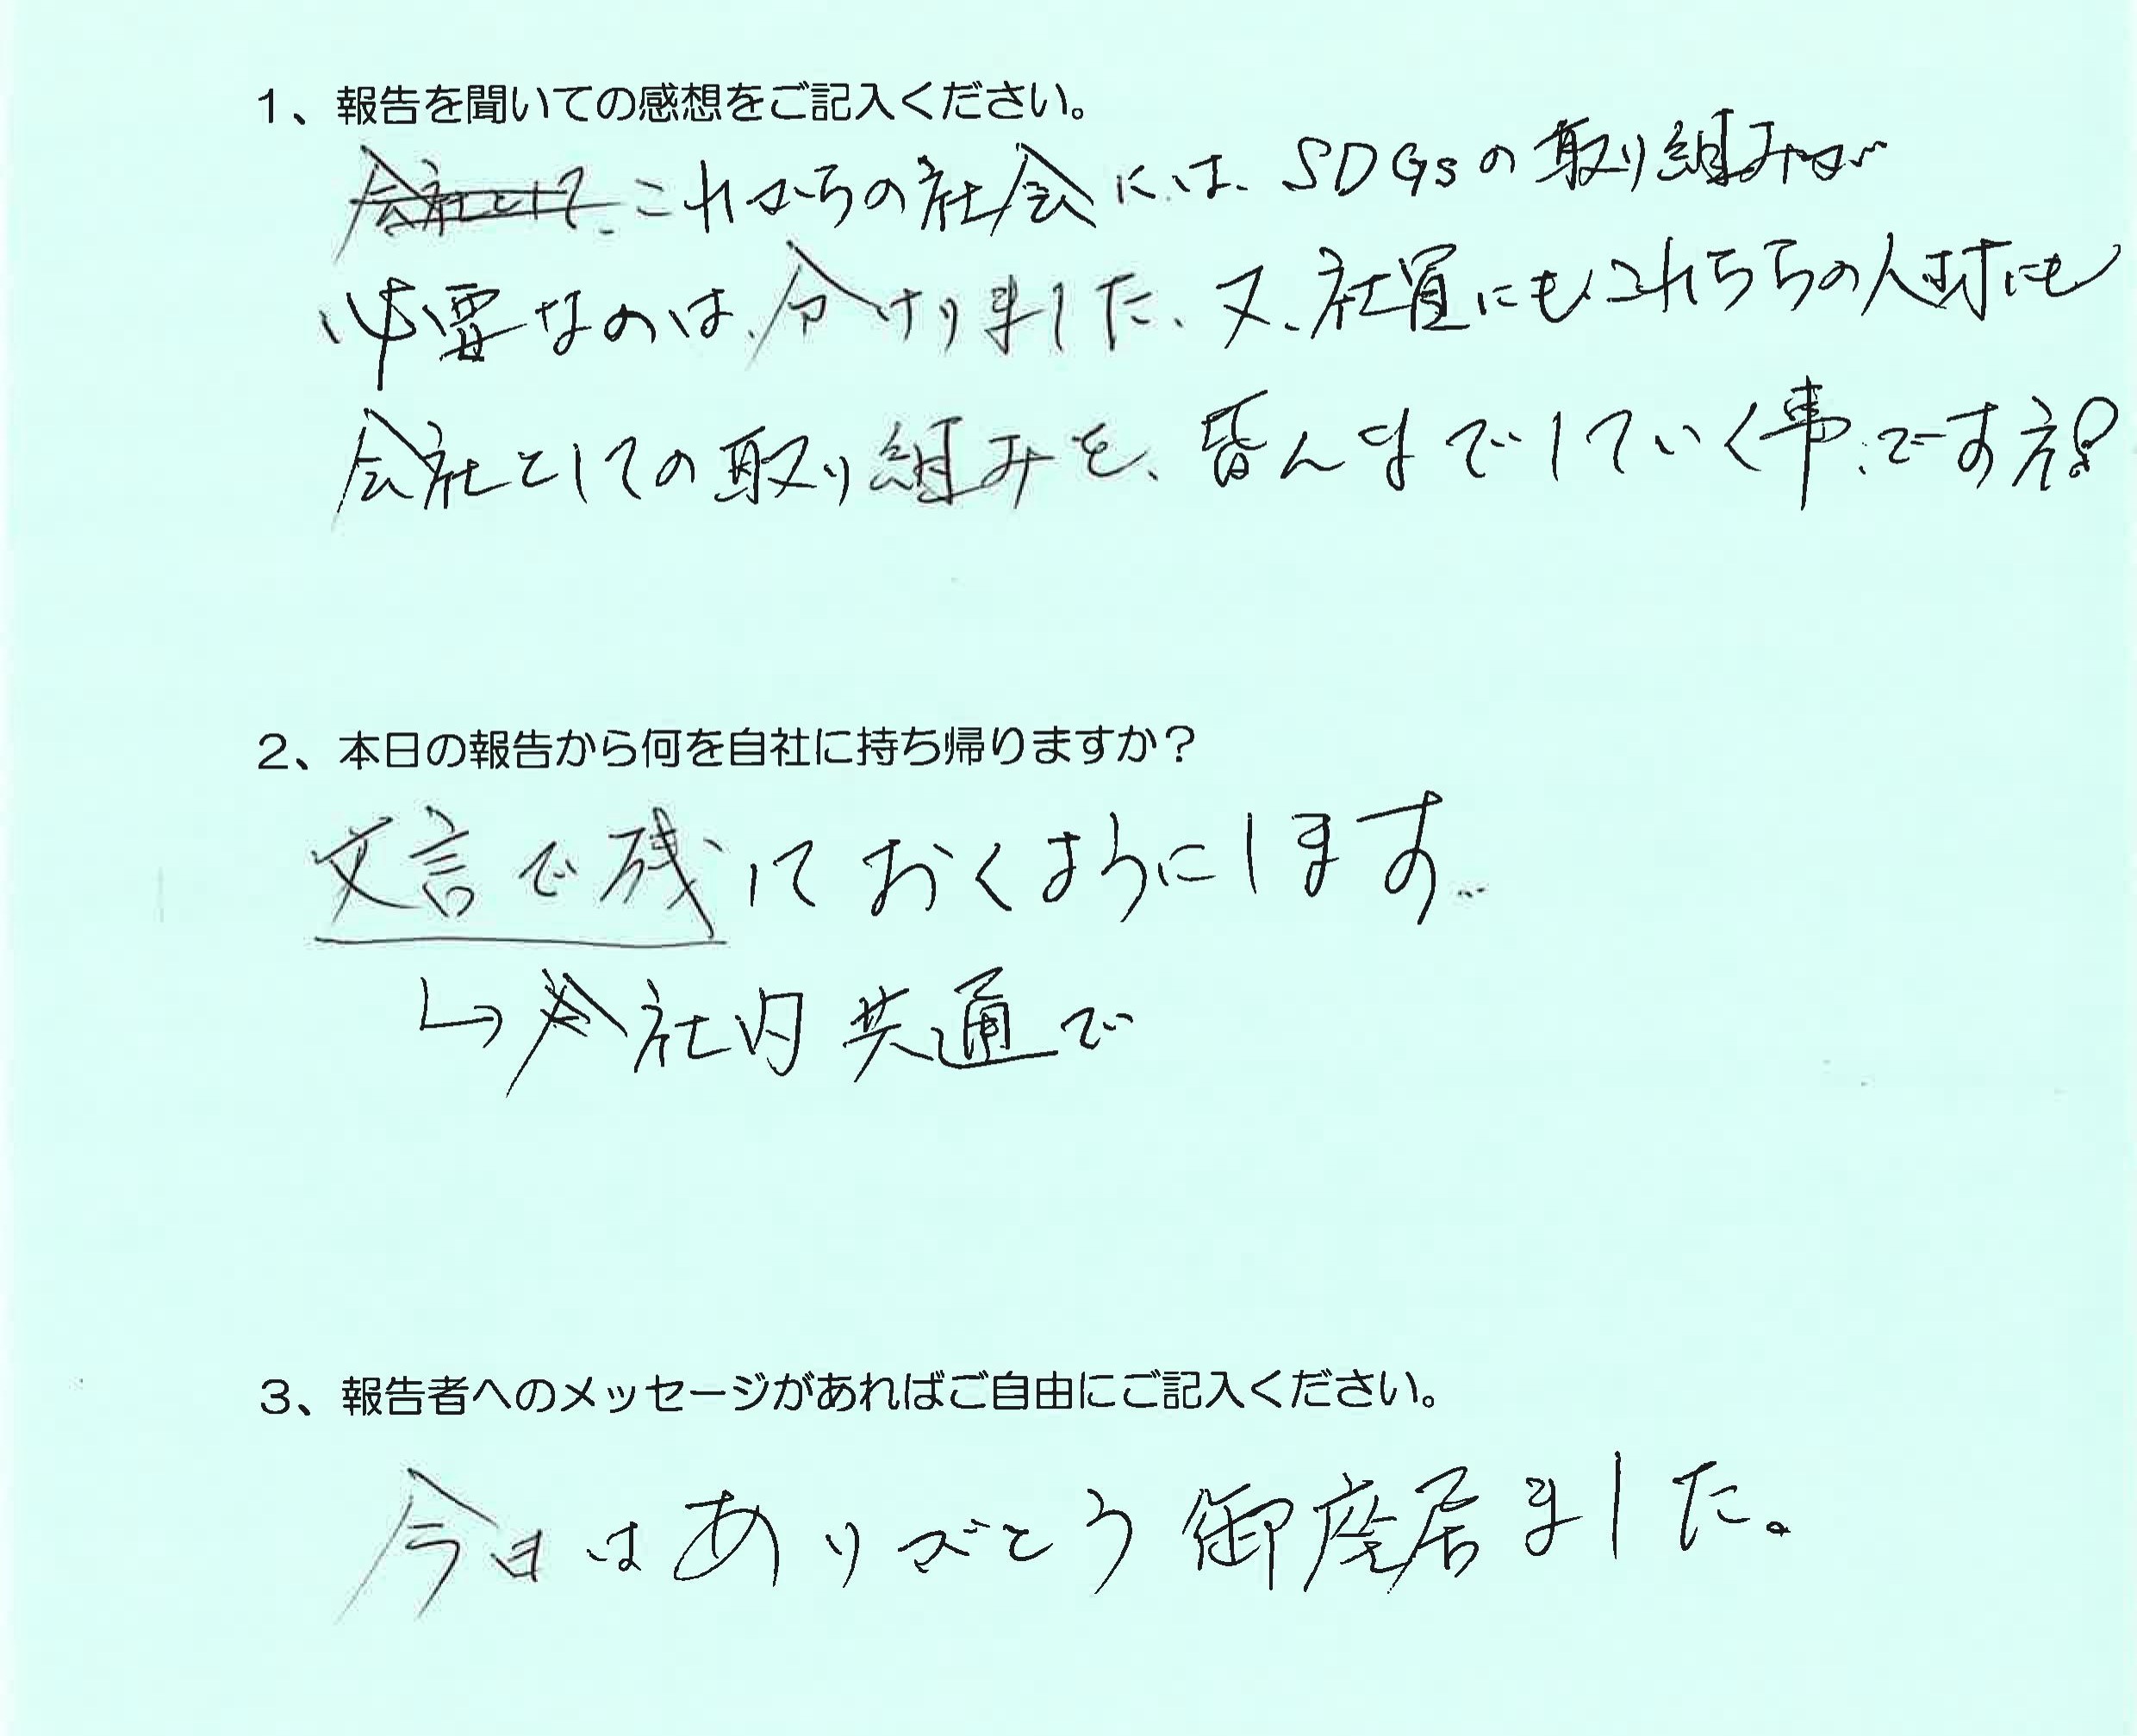 1、報告を聞いての感想をご記入ください。
会社として、これからの社会には、SDGsの取り組みが
必要なのは、分けりました、又、社員にも、これらの人材にも
会社としての取り組みを、皆んなでしていく事、ですネ?
2、本日の報告から何を自社に持ち帰りますか?
文言で残しておくようにします…
↳ 社内共通で
3、報告者へのメッセージがあればご自由にご記入ください。
今日はありがとう御座居ました。